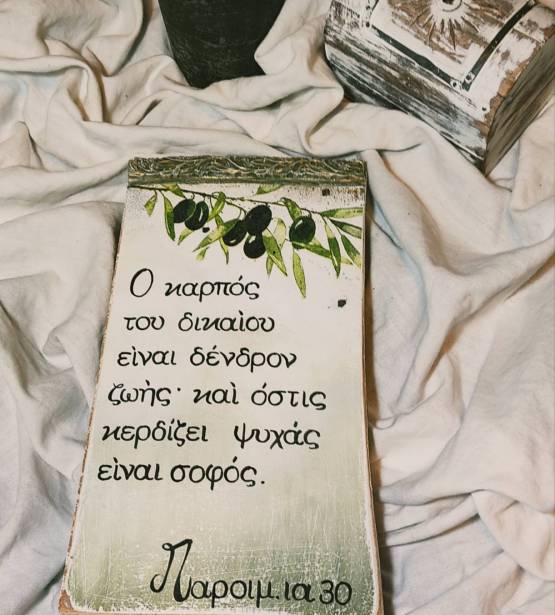 Ο καρπός
του δικαὶου
εὶναι δένδρον
ζωὴς· καὶ όστις
κερδίζει ψυχάς
εὶναι σοφός.
Παροιμ. ια 30